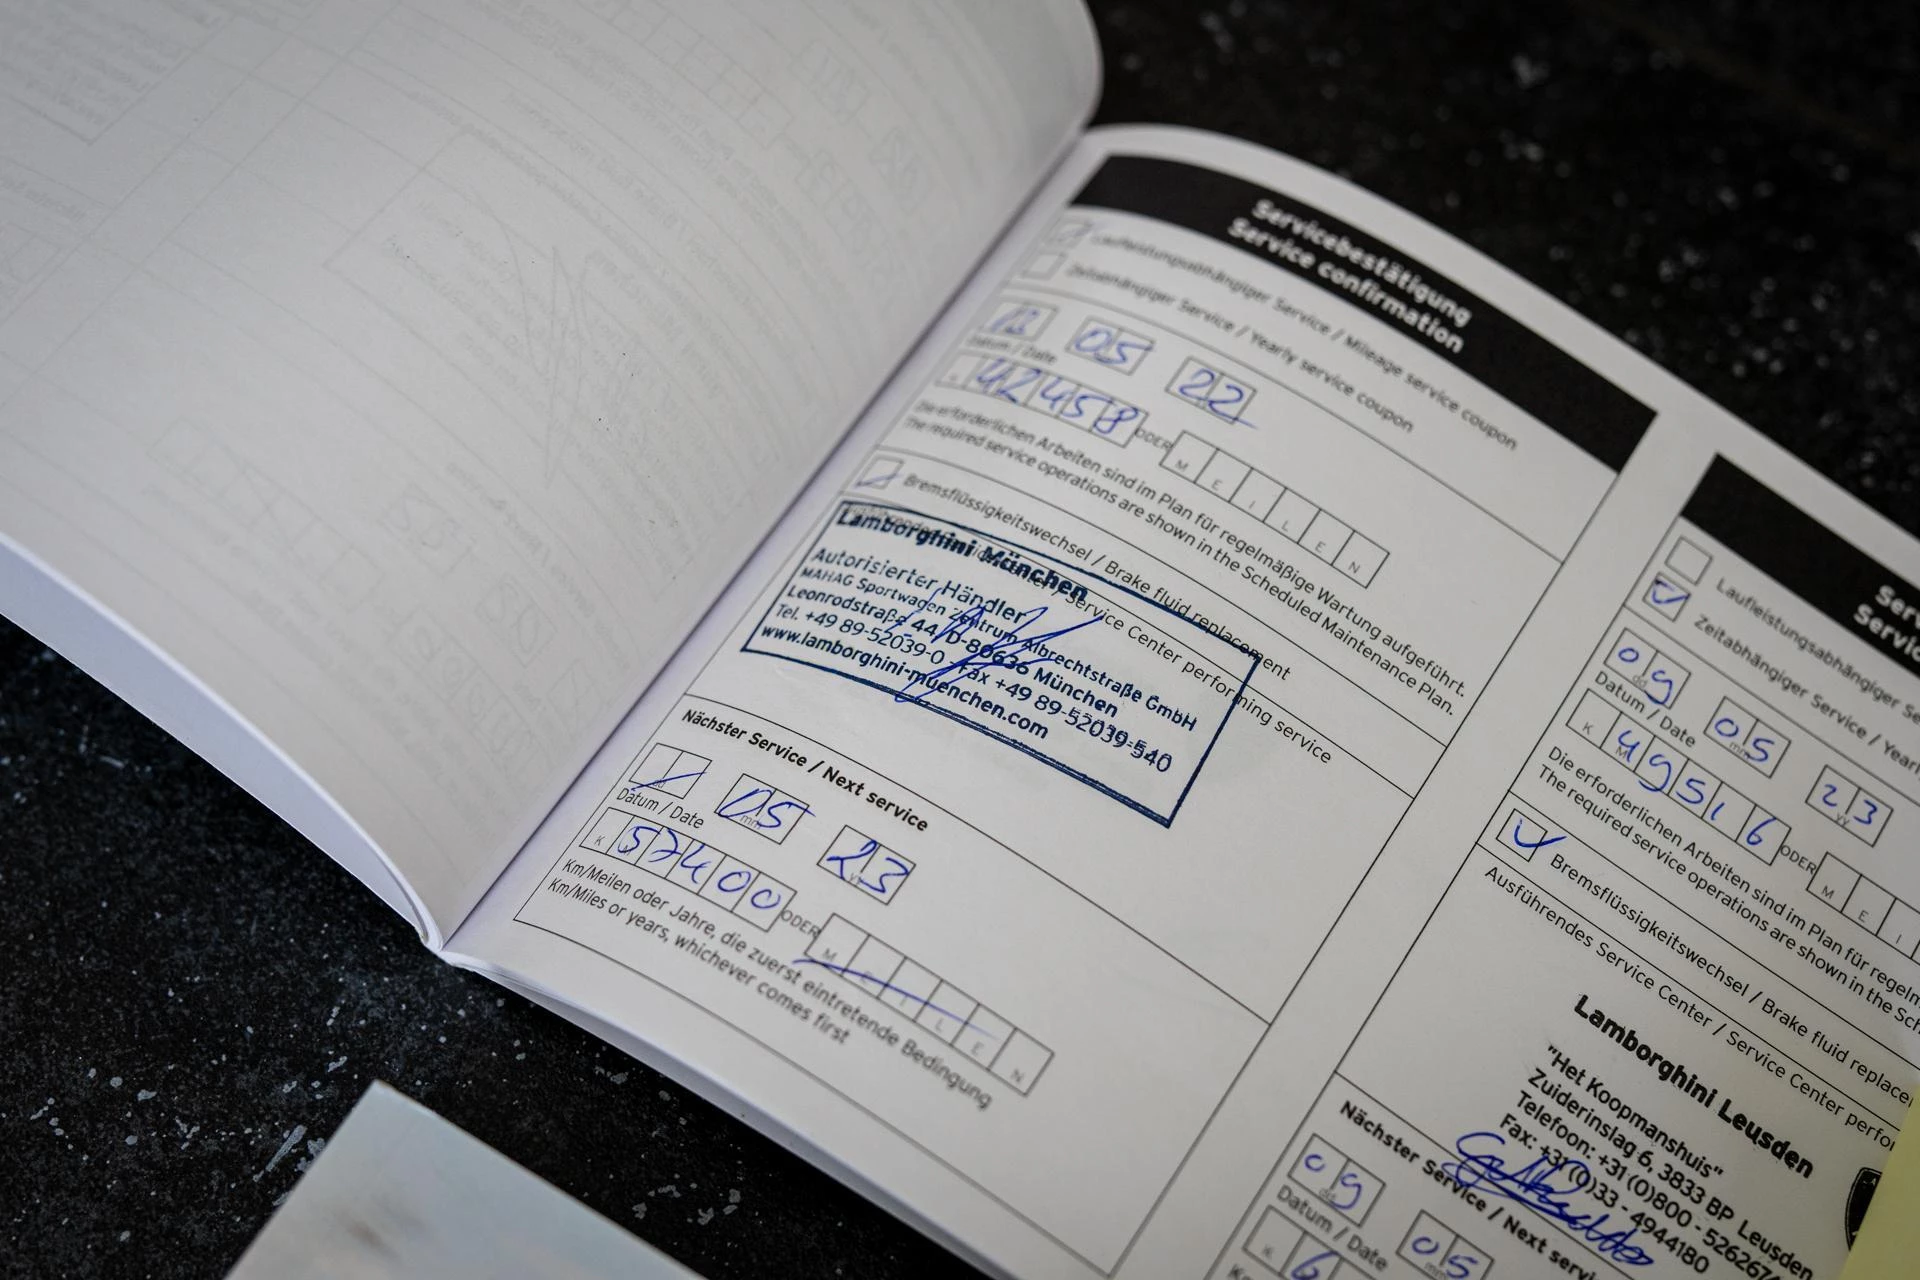 Servicebestätigung
Service confirmation
Laufleistungsabhängiger Service / Mileage service coupon
Zeitabhängiger Service / Yearly service coupon
05 22
Datum / Date
42458 ODER M E I L E N
Die erforderlichen Arbeiten sind im Plan für regelmäßige Wartung aufgeführt.
The required service operations are shown in the Scheduled Maintenance Plan.
Bremsflüssigkeitswechsel / Brake fluid replacement
Service Center performing service
Lamborghini München
Autorisierter Händler
MAHAG Sportwagen Zentrum Albrechtstraße GmbH
Leonrodstraße 44, D-80636 München
Tel. +49 89-52039-0 Fax +49 89-52039-540
www.lamborghini-muenchen.com
Nächster Service / Next service
dd 05 mm 23 yy
Datum / Date
K 57400 ODER M E I L E N
Km/Meilen oder Jahre, die zuerst eintretende Bedingung
Km/Miles or years, whichever comes first
Laufleistungsabhängiger
Zeitabhängiger Service /
09 dd 05 mm 23 yy
Datum / Date
K M 49516 ODER M E I
Die erforderlichen Arbeiten sind im Plan für
The required service operations are shown in the
Bremsflüssigkeitswechsel / Brake fluid
Ausführendes Service Center / Service Center
Lamborghini Leusden
"Het Koopmanshuis"
Zuiderinslag 6, 3833 BP Leusden
Telefoon: +31 (0)800 -
Fax: +31 (0)33 - 4944180
Nächster Service / Next
09 dd 05 mm
Datum / Date
K 6